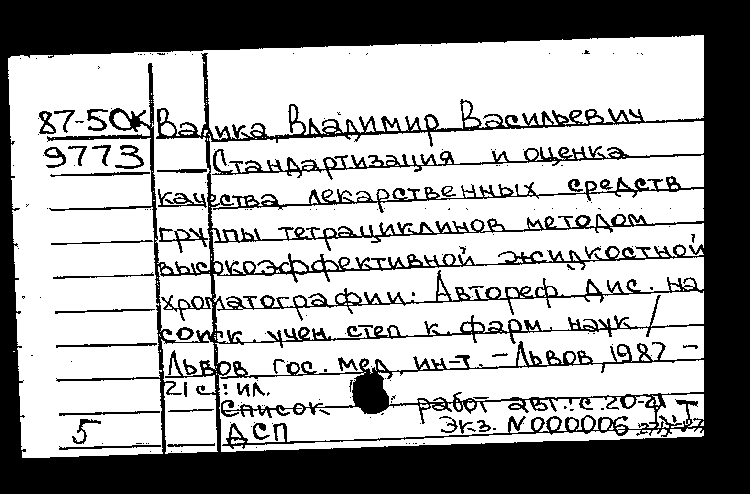 87-5ОК Валика, Владимир Васильевич
9773 Стандартизация и оценка
качества лекарственных средств
группы тетрациклинов методом
высокоэффективной жидкостной
хроматографии: Автореф. дис. на
соиск. учен. степ. к. фарм. наук /
Львов. гос. мед. ин-т. - Львов, 1987 -
21 с.: ил.
Список работ авт.: с. 20-21
5 ДСП Экз. N000006